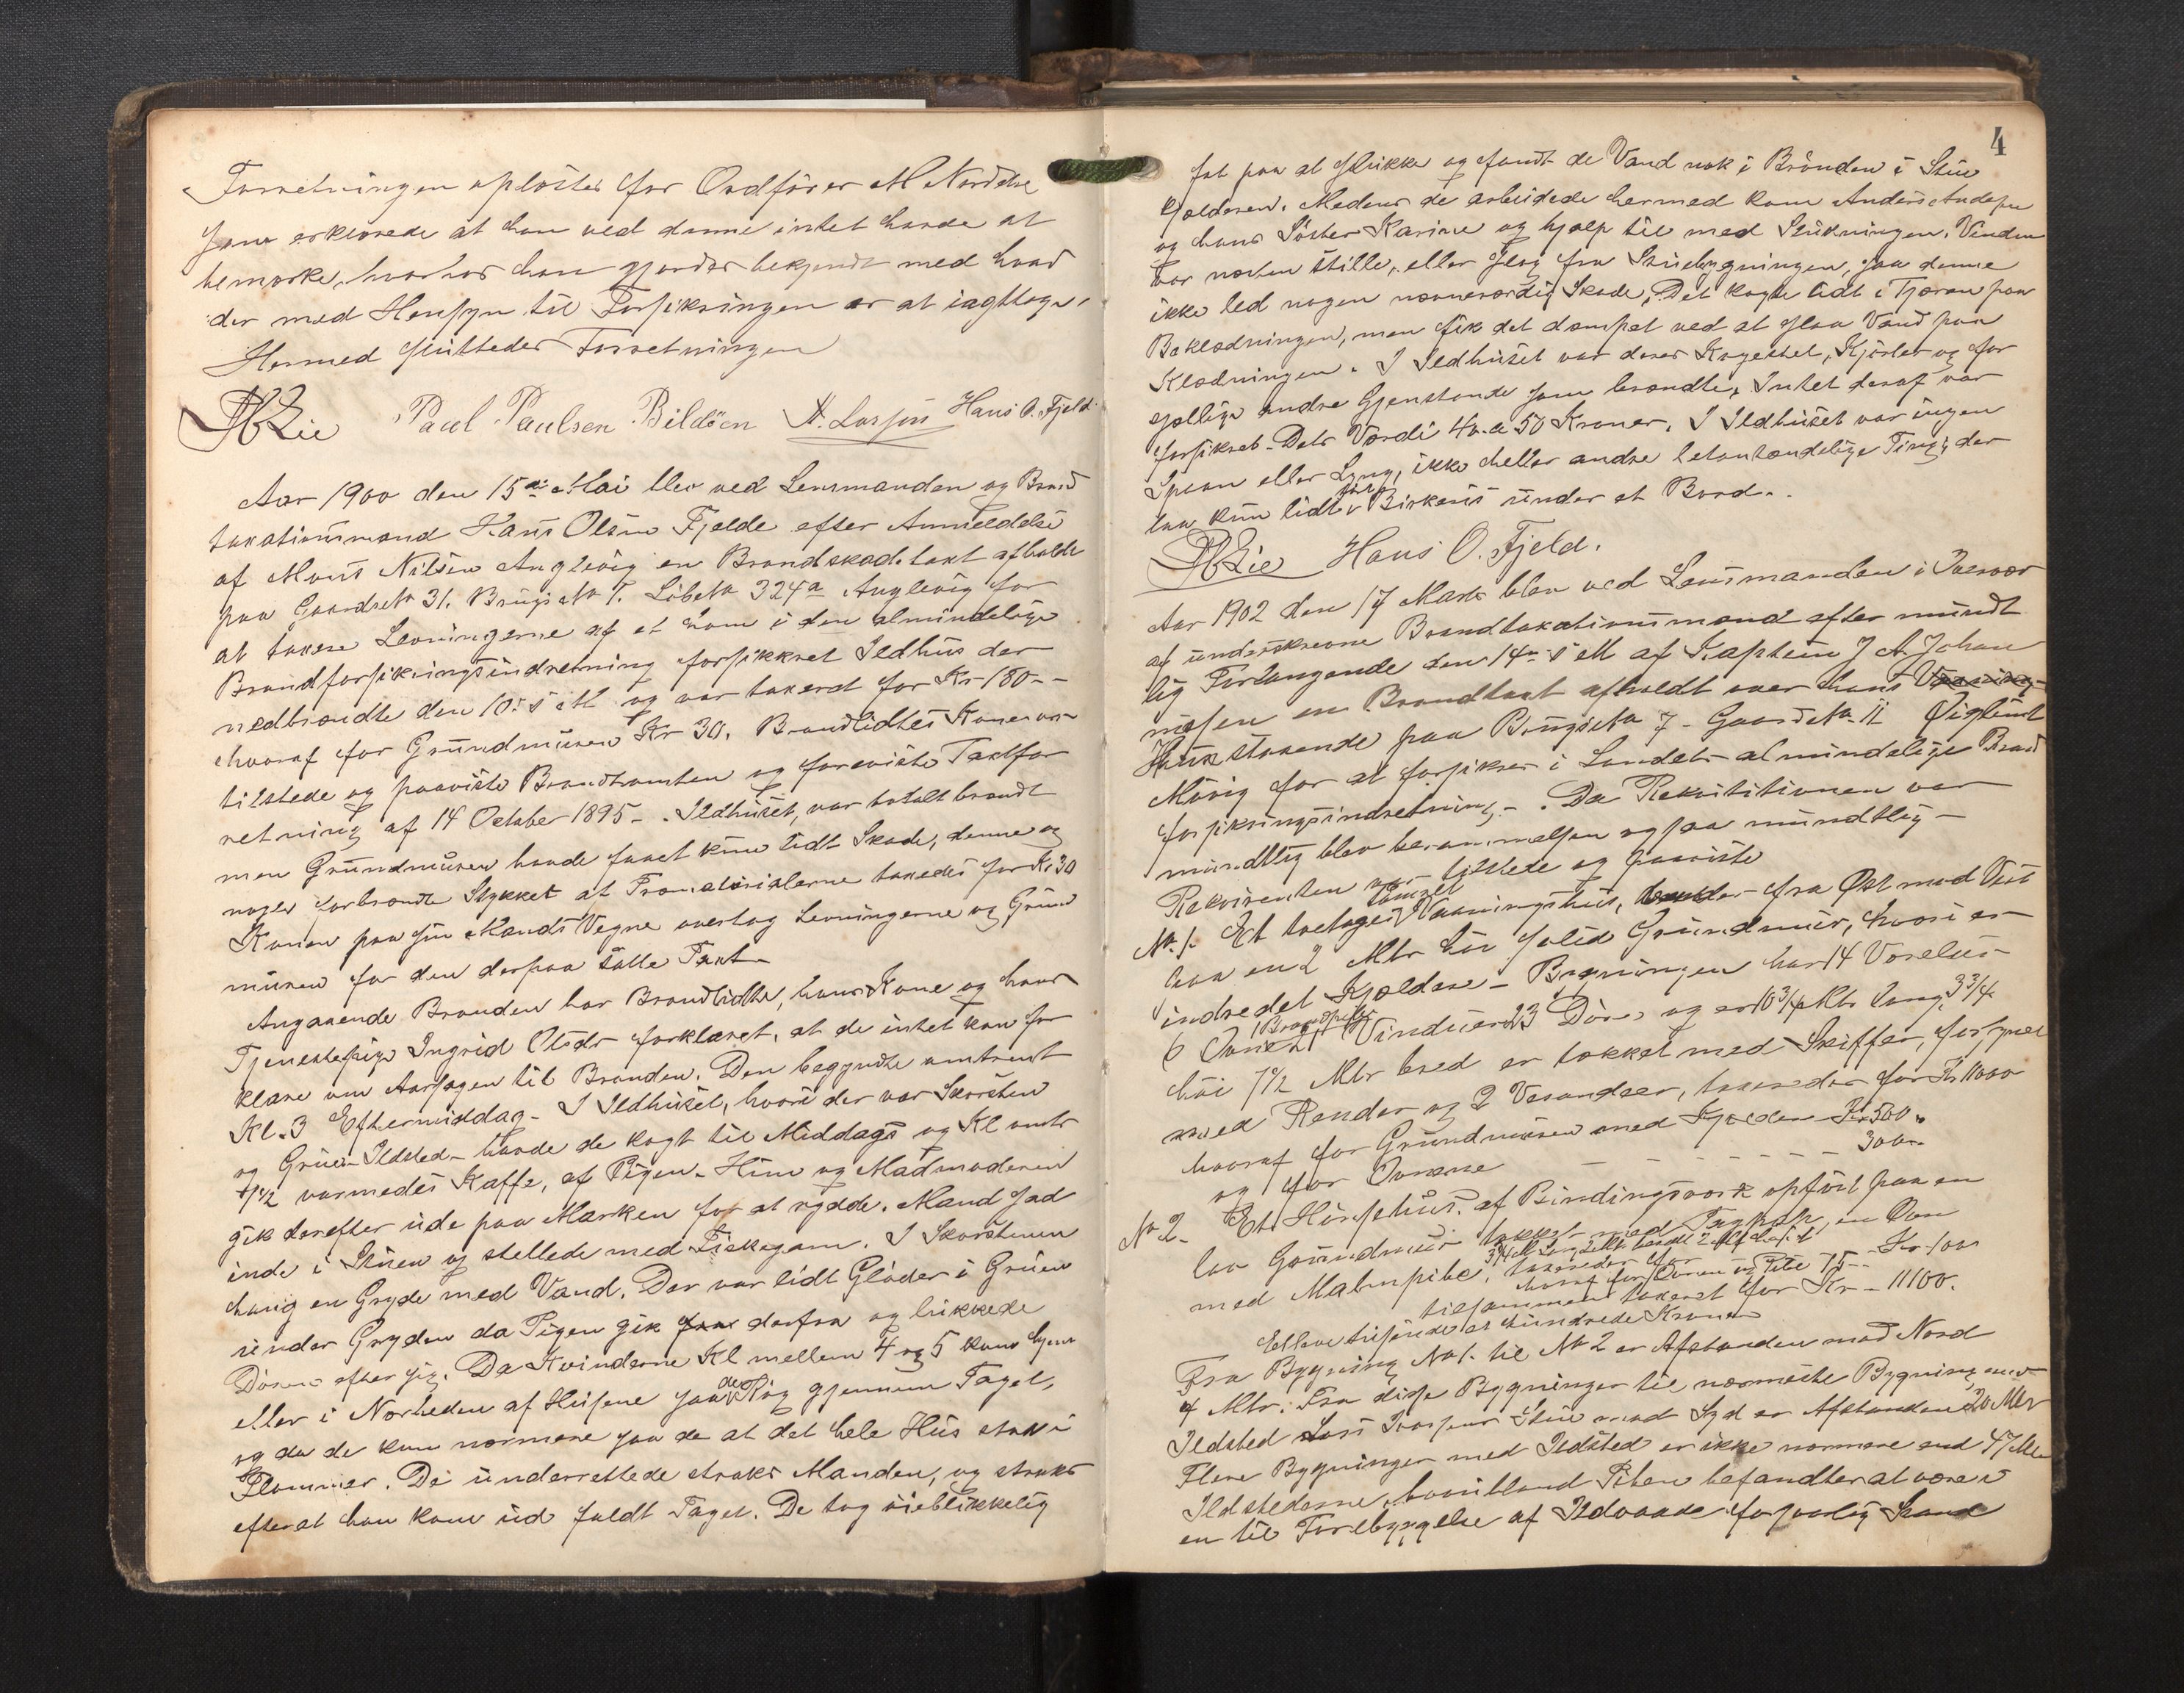 Forretningen oplæstes for Ordfører M Nordvik
som erklærede at han ved denne intet havde at
bemærke, hvorhos han gjordes bekjendt med hvad
der med Hensyn til Forsikringen er at iagttage.
Hermed sluttedes Forretningen
Paul Paulsen Bildöen N. Larsen Hans O. Fjeld.
Aar 1900 den 15de Mai blev ved Lensmanden og Brand
taxationsmand Hans Olsen Fjelde efter Anmeldelse
af Mons Nilsen Anglevig en Brandskadetaxt afholdt
paa Gaardsno 31. Brugsno 7. Löbeno 324a Anglevig for
at taxere Levningerne af et ham i den almindelige
Brandforsikringsindretning forsikkret Ildhus der
nedbrændte den 10de s M og var taxeret for Kr 180--
hvoraf for Grundmuren Kr 30. Brandlidtes Kone var
tilstede og paaviste Brandtomten og foreviste Taxtfor
retning af 14 October 1895-. Ildhuset, var totalt brændt
men Grundmuren havde faaet kun lidt Skade, denne og
nogle forbrændte Stykker af Træmaterialerne taxedes for Kr 30
Konen paa sin Mands Vegne overtog Levningerne og Grund
muren for den derpaa satte Taxt-
Angaaende Branden har Brandlidte, hans Kone og hans
Tjenestepige Ingrid Olsdr forklaret, at de intet kan for
klare om Aarsagen til Branden. Den begyndte omtrent
Kl. 3 Eftermiddag- I Ildhuset, hvori der var Skorsten
og Grue-Ildsted- havde de kogt til Middags og Kl omtr
1½ varmedes Kaffe, af Pigen- Hun og Madmoderen
gik derefter ude paa Marken for at rydde. Mand sad
inde i Stuen og stellede med Fiskegarn. I Skorstenen
hang en Gryde med Vand. Der var lidt Glöder i Gruen
under Gryden da Pigen gik derfra og lukkede
Dören efter sig. Da Kvinderne Kl mellem 4 og 5 kom hjem
eller i Nærheden af Husene saa de Røg gjennem Taget,
og da de kom nærmere saa de at det hele Hus stod i
Flammer. De underrettede straks Manden, og straks
efterat han kom ud faldt Taget. De tog öieblikkelig
4
fat paa at slukke og fandt de Vand nok i Brönden i Stue
kjælderen. Medens de arbeidede hermed kom Anders Andersen
og hans Söster Karine og hjalp til med Slukningen. Vinden
var næsten stille, eller slog fra Stuebygningen, saa denne
ikke led nogen nævneværdig Skade. Det kogte lidt i Tjæren paa
Beklædningen, men fik det dæmpet ved at slaa Vand paa
Klædningen. I Ildhuset var deres Kogeshel, Kjörler og for
sjellige andre Gjenstande som brændte, Intet deraf var
forsikret- Dets Værdi 40 a 50 Kroner. I Ildhuset var ingen
Spaan eller Lyng, ikke heller andre letantændelige Ting; der
laa kun lidt Birkeris under et Bord.
Hans O. Fjeld.
Aar 1902 den 17 Marts blev ved Lensmanden i
af underskrevne Brandtaxationsmænd efter mundt
lig Forlangende den 14de s M af Kaptein J A Johan
nesen en Brandtaxt afholdt over hans
Huse staaende paa Brugsno 7- Gaardsno 11
Mövig for at forsikres i Landets almindelige Brand
forsikringsindretning-. Da Rekvisitionen var
mundtlig blev berammelsen ogsaa mundtlig-
Rekvirenten var tilstede og paaviste
No 1. Et toetages tömret Vaaningshus, fra Øst mod Vest
paa en 2 Mtr höi solid Grundmur, hvori er
indredet Kjælder- Bygningen har 14 Værelser
6 Ovne 21 Vinduer 23 Döre og er 10¾ Mtr lang, 3¾
höi 7½ Mtr bred er tækket med Skiffer, forsynet
med Render og 2 Verandaer, taxeredes for Kr 11000
hvoraf for Grundmuren med Kjælder Kr 500.
og for Ovnene - - - - - - - 300.
No 2- Et Hönsehus af Bindingsverk opfört paa en
lav Grundmur tækket med Tagpap, en Ovn
med Malmpibe, taxeredes for Kr 100
hvoraf for Ovnen og Pibe 75-
tilsammen taxeret for Kr- 11100.
Elleve tusinde et hundrede Kroner
Fra Bygning No 1. til No 2 er Afstanden mod Nord
4 Mtr. Fra disse Bygninger til nærmeste Bygning med
Ildsted Lars Stue mod Syd er Afstanden 20 Mtr
Flere Bygninger med Ildsted er ikke nærmere end 47 Mtr
Ildstederne, hvoriblandt Piben befandtes at være i
en til Forebyggelse af Ildvaade forsvarlig Stand